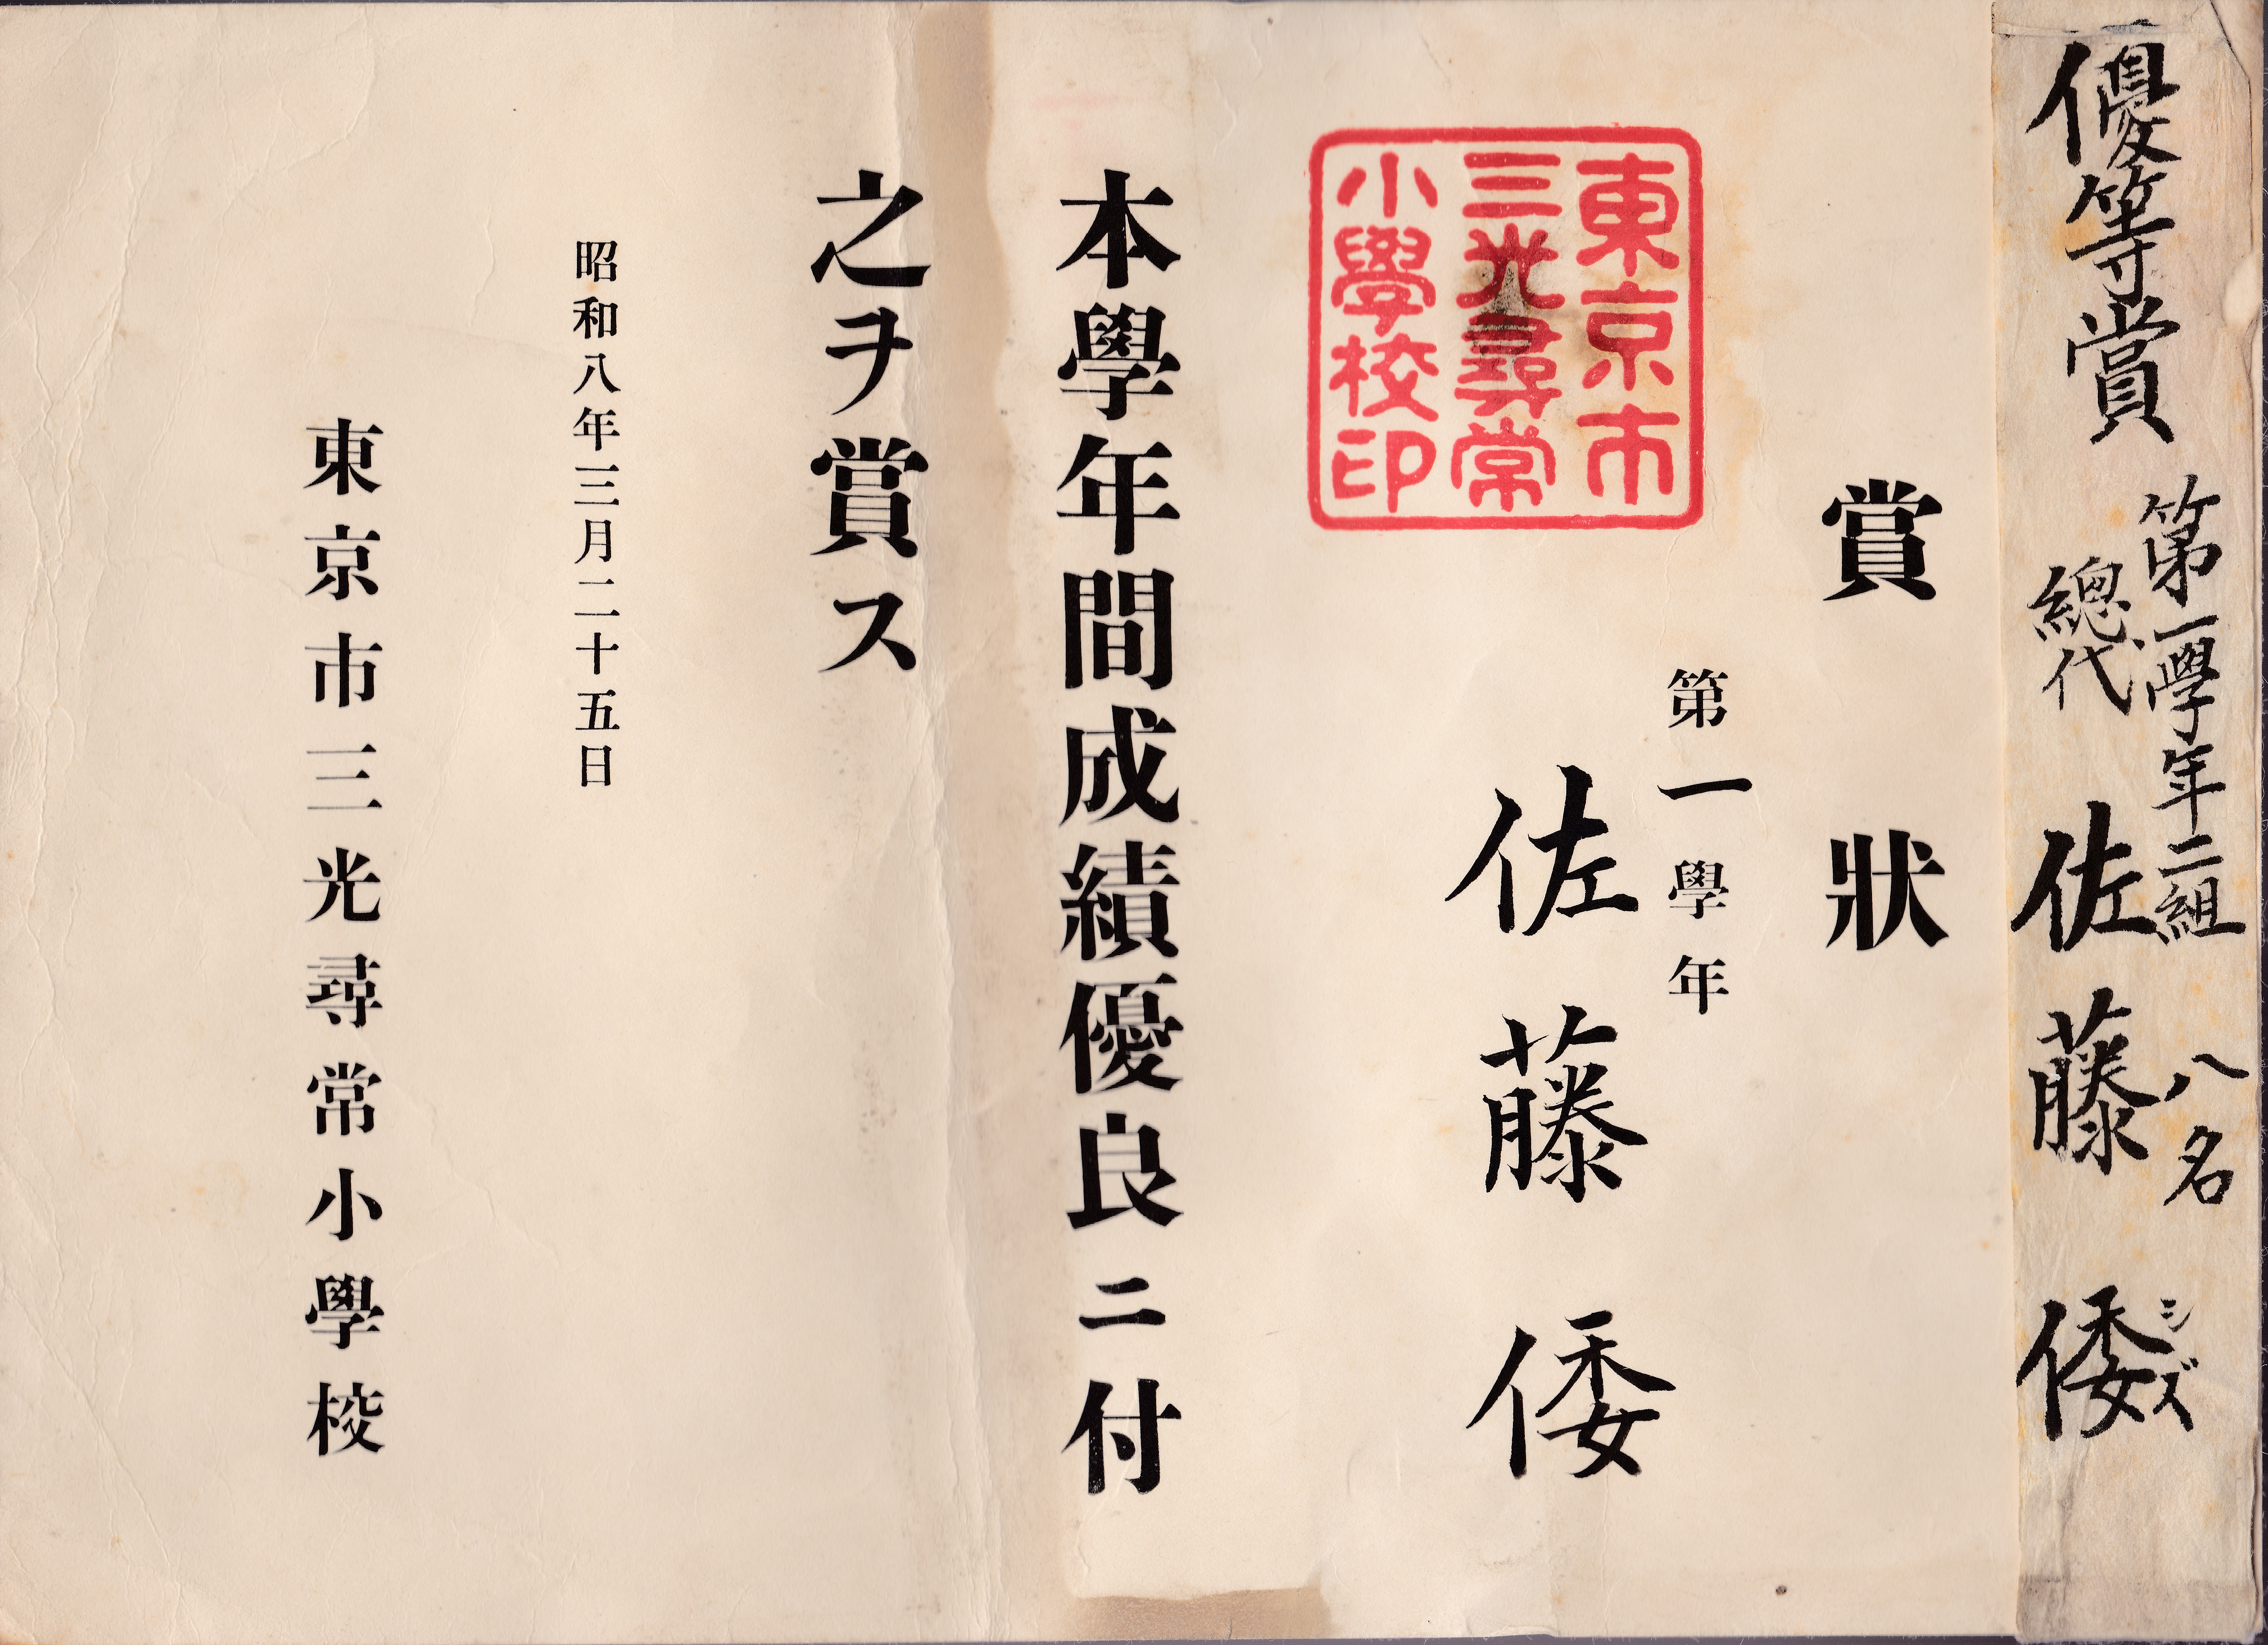 優等賞
第一學年二組 八名
總代 佐藤 倭
シズ
賞狀
第一學年
佐藤倭
東京市
三光尋常
小學校印
本學年間成績優良ニ付
之ヲ賞ス
昭和八年三月二十五日
東京市三光尋常小學校